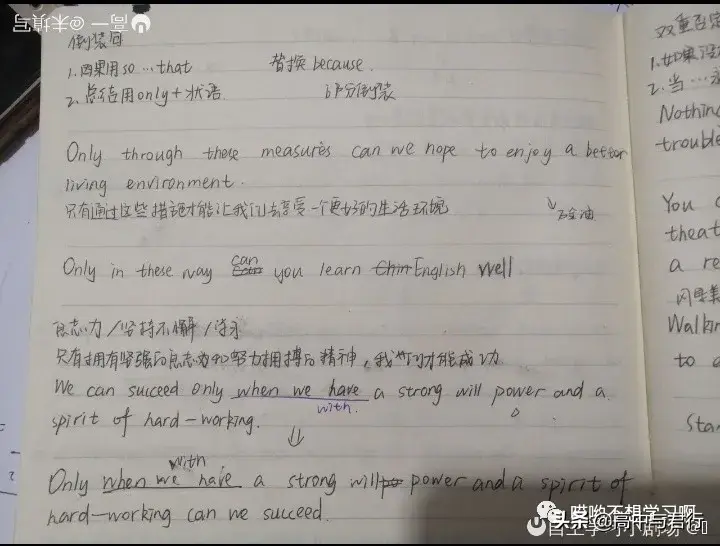 高一@未填写
倒装句
1.因果用so…that 替换because.
2.总结用only+状语 部分倒装
Only through these measures can we hope to enjoy a better
living environment.
只有通过这些措施才能让我们去享受一个更好的生活环境
Only in these way can you learn English well
意志力/坚持不懈/
只有拥有坚强的意志力和努力拥搏的精神,我们才能成功
We can succeed only when we have a strong will power and a
with.
spirit of hard-working.
with
Only when we have a strong will power and a spirit of
hard-working can we succeed.
双重否定
1.如果没
2.当…
Nothing
trouble
You c
theat
a re
Walkin
to a
Star
不想学习啊
头条@高中有君衔